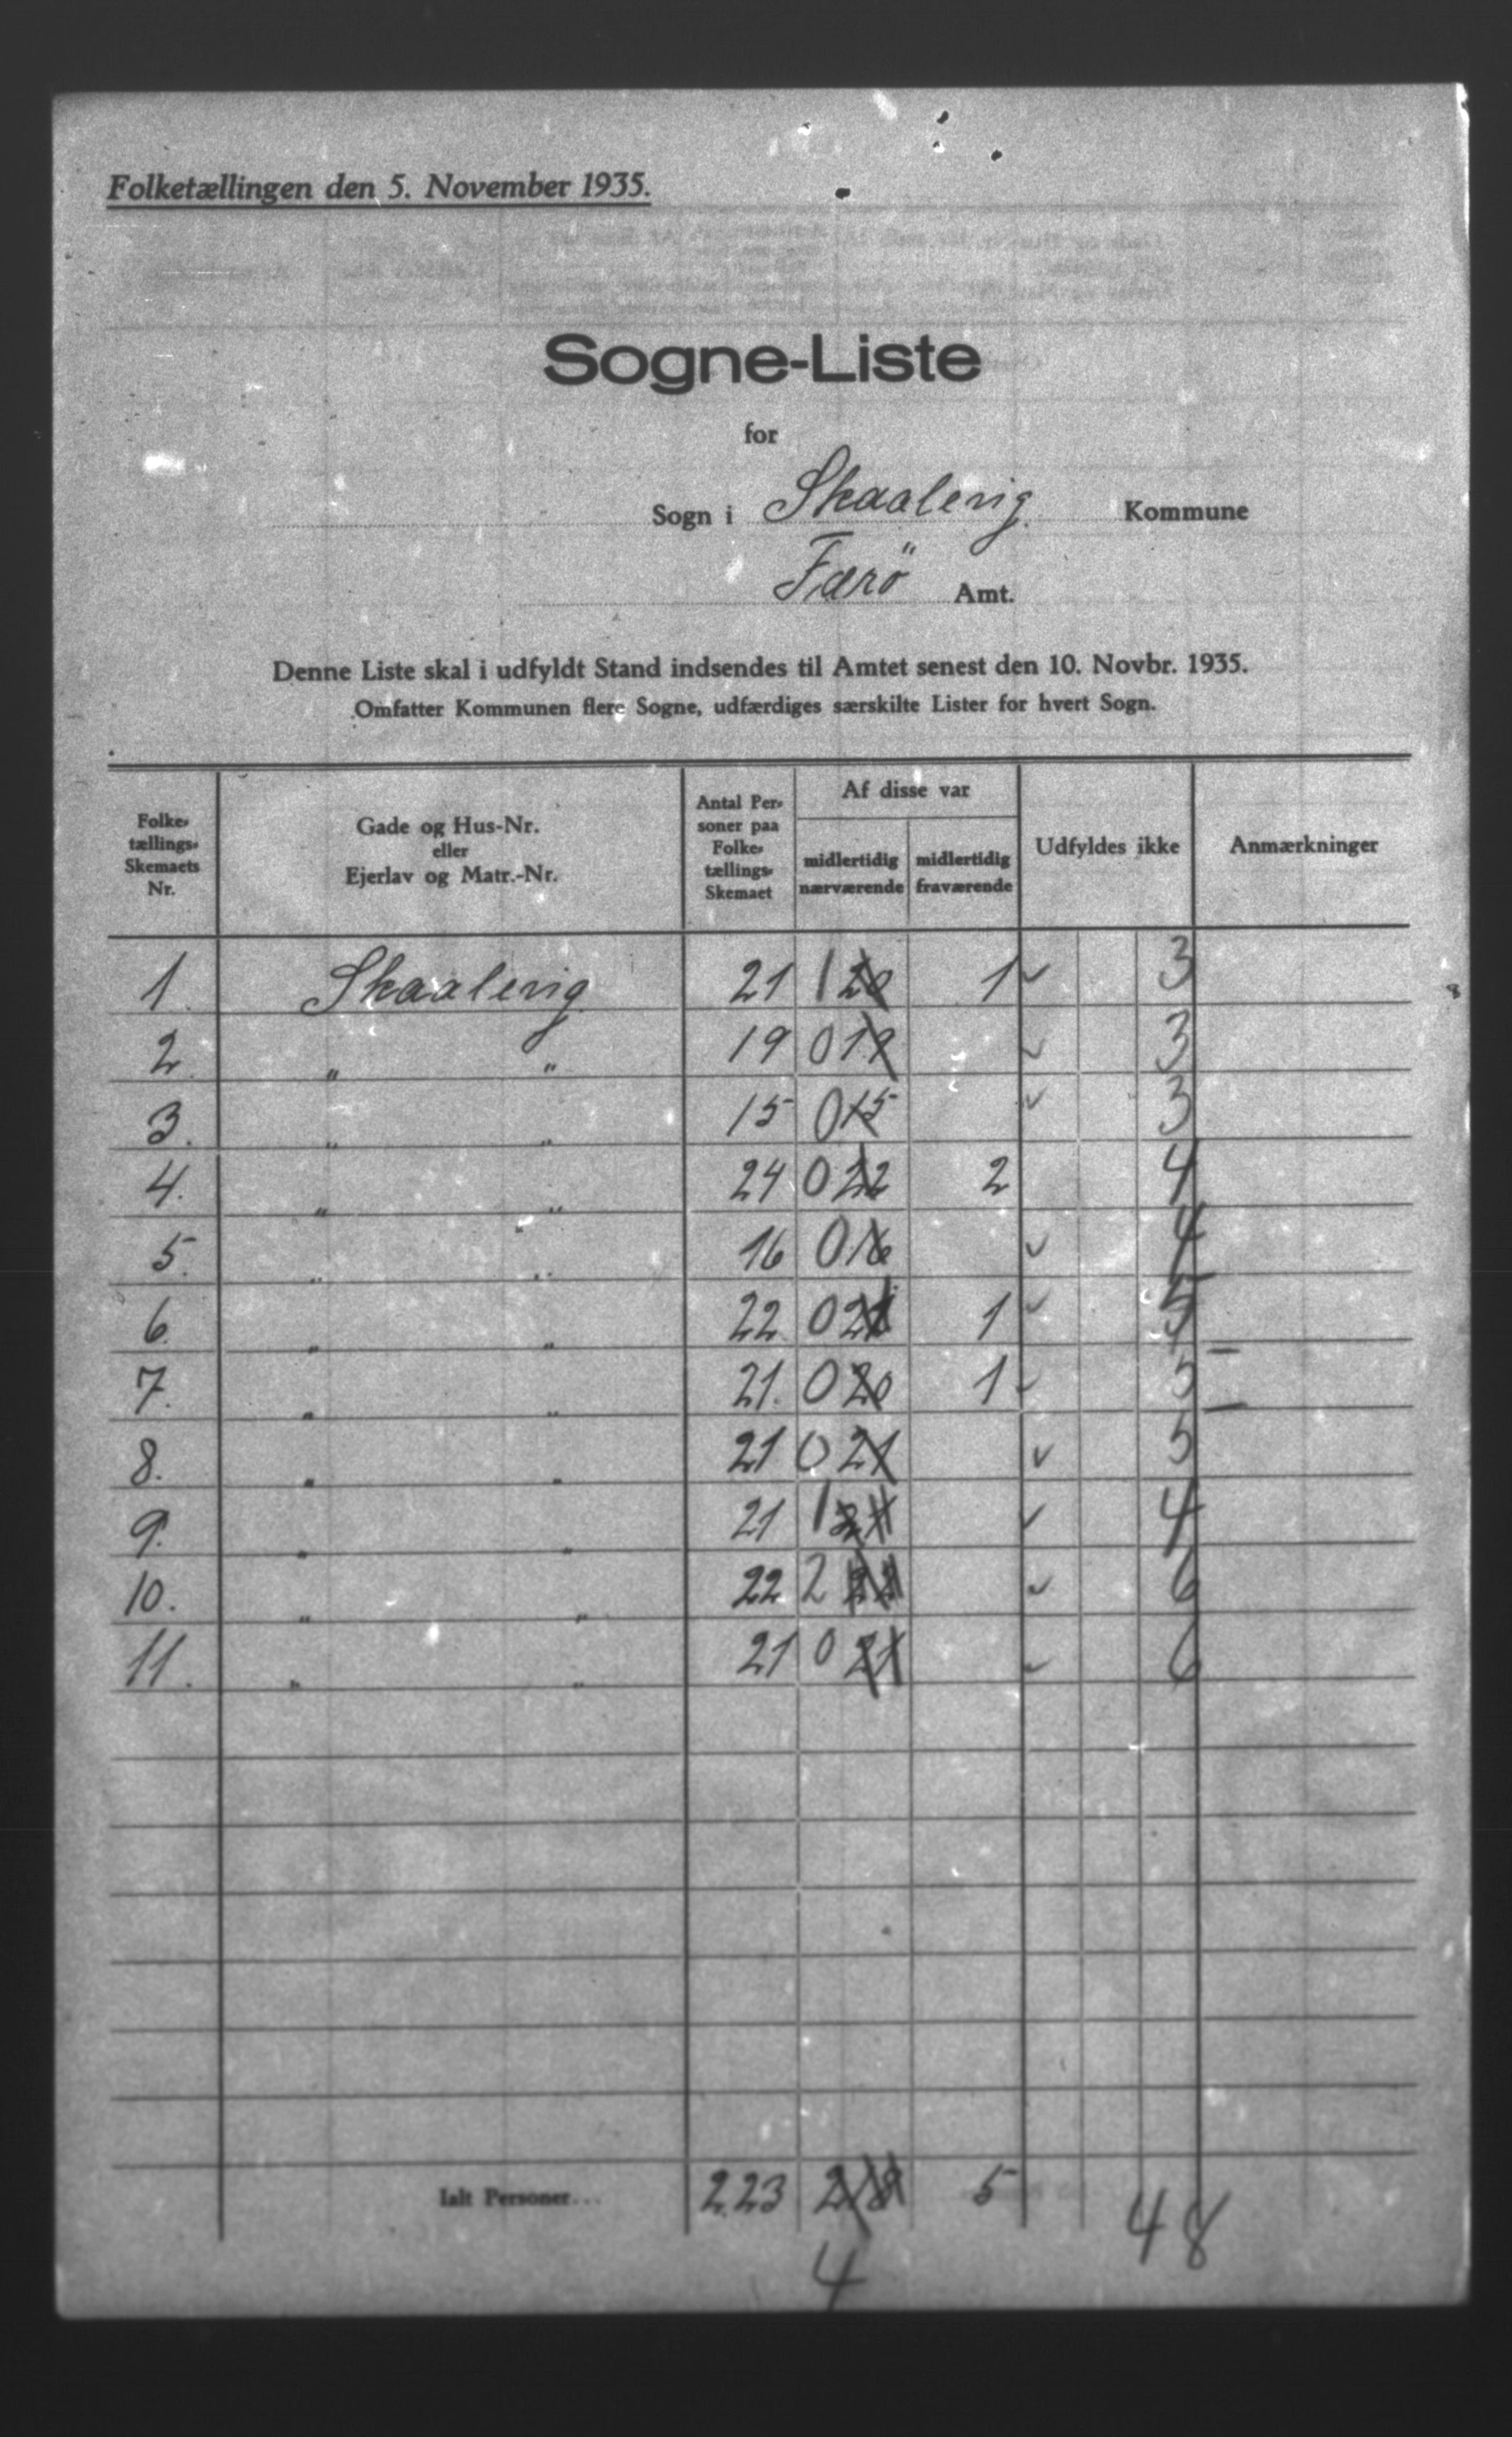 Folketællingen den 5. November 1935.
Sogne-Liste
for
Sogn i Skaalevig Kommune
Færö Amt.
Denne Liste skal i udfyldt Stand indsendes til Amtet senest den 10. Novbr. 1935.
Omfatter Kommunen flere Sogne, udfærdiges særskilte Lister for hvert Sogn.
Folke-
tællings-
Skemaets
Nr.
Gade og Hus-Nr.
eller
Ejerlav og Matr.-Nr.
Antal Per-
soner paa
Folke-
tællings-
Skemaet
Af disse var
midlertidig
nærværende
midlertidig
fraværende
Udfyldes ikke
Anmærkninger
1. Skaalevig 21 1 20 1 ✓ 3
2. " " 19 0 19 ✓ 3
3. " " 15 0 15 ✓ 3
4. " " 24 0 22 2 4
5. " " 16 0 16 ✓ 4
6. " " 22 0 21 1 ✓ 5
7. " " 21. 0 20 1 ✓ 5
8. " " 21 0 21 ✓ 5
9. " " 21 1 21 ✓ 4
10. " " 22 2 22 ✓ 6
11. " " 21 0 21 ✓ 6
Ialt Personer... 223 218 5 48
4